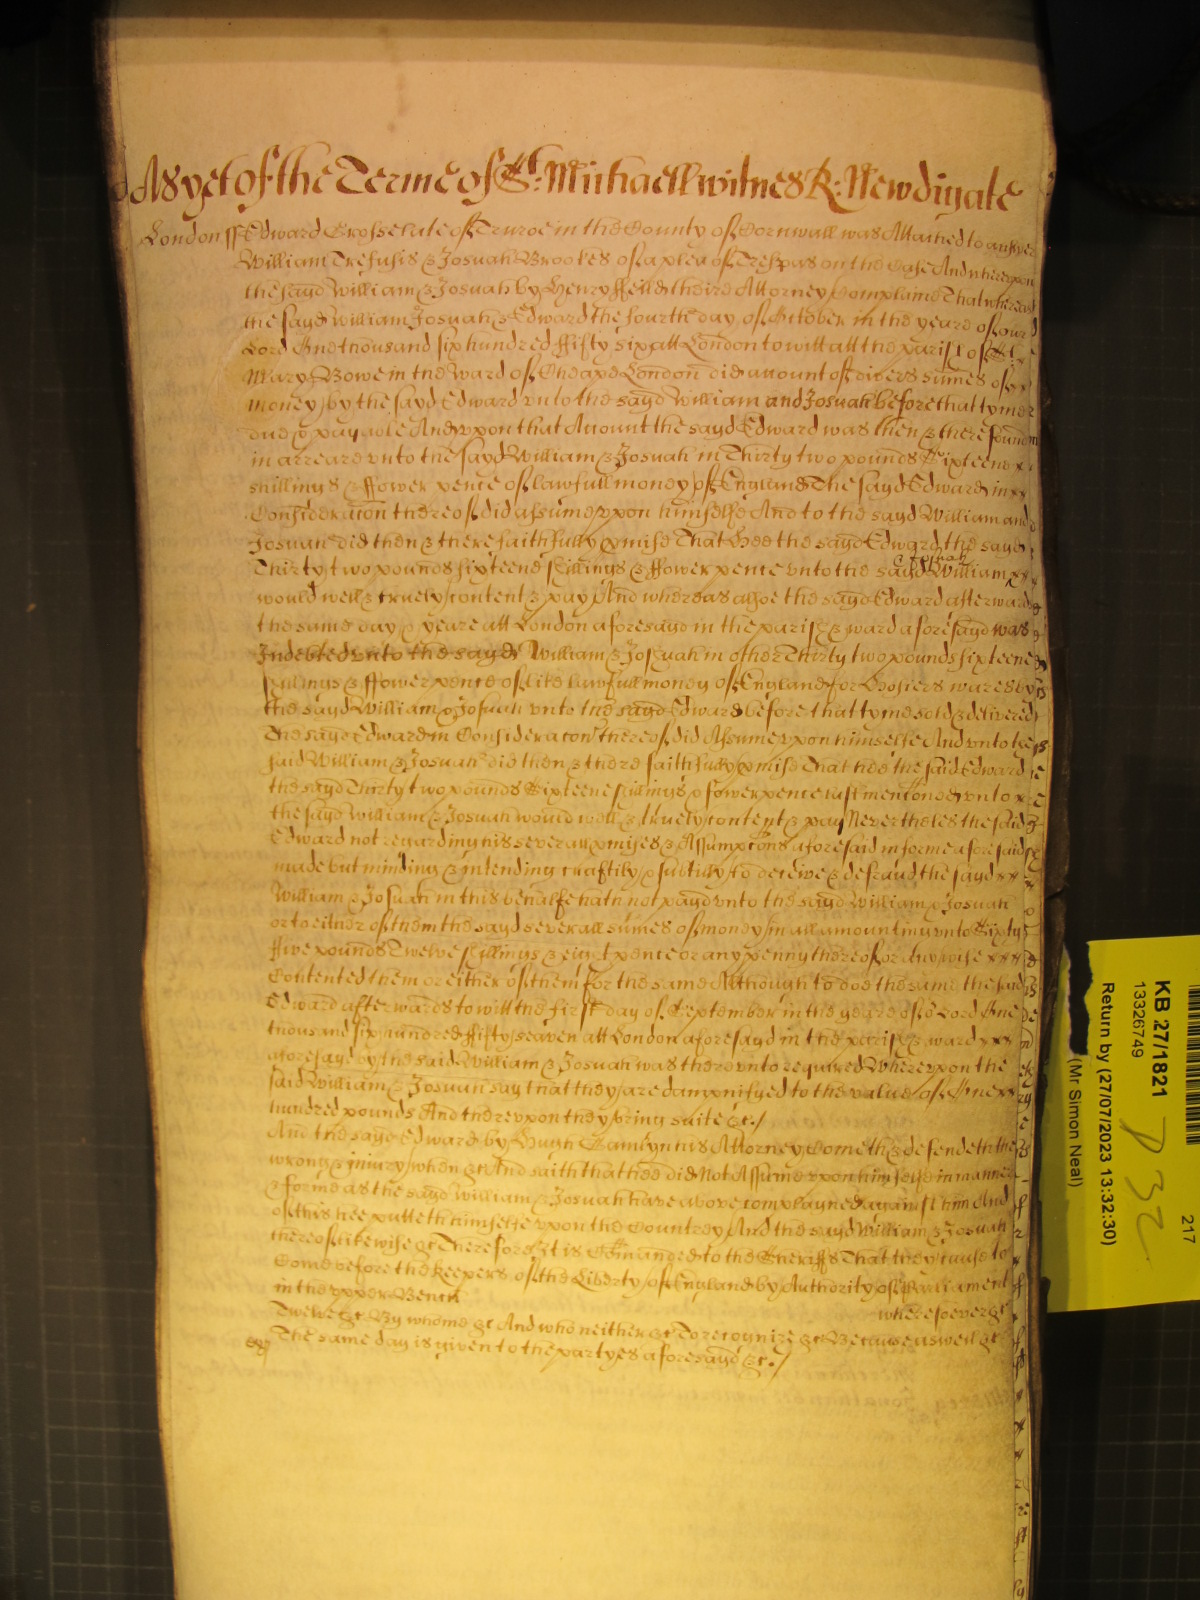 As yet of the Terme of St: Michaell witnes R: Newdigate
London ss Edward Crosse late of Truroe in the County of Cornwall was Attached to answer
William Trefusis & Josuah Brookes of a plea of Trespas on the Case And whereupon
the sayd William & Josuah by Henry Feild theire Attorney Complaine That whereas
the sayd William Josuah & Edward the fourth day of October in the yeare of our
Lord One thousand six hundred fifty six att London to witt att the parish of St
Mary Bowe in the Ward of Cheape London did account of divers sumes of
money by the sayd Edward unto the sayd William and Josuah before that tyme
due & payable And upon that Account the sayd Edward was then & there found
in arreare unto the sayd William & Josuah in Thirty two pounds Sixteene
shillings & ffower pence of lawfull money of England The sayd Edward in
Consideracon thereof did assume upon himselfe And to the sayd William and
Josuah did then & there faithfully pmise That Hee the sayd Edward the sayd
Thirty two pounds sixteene shillings & ffower pence unto the sayd William & Josuah
would well & truely content & pay And whereas alsoe the sayd Edward afterwards
the same day & yeare att London aforesayd in the parish & ward aforesayd was
Indebted unto the sayd William & Josuah in other Thirty two pounds sixteene
shillings & ffower pence of like lawfull money of England for Hosiers wares by
the sayd William & Josuah unto the sayd Edward before that tyme sold & delivered
The sayd Edward in Consideracon thereof did Assume upon himselfe And unto the
said William & Josuah did then & there faithfully pmise That hee the said Edward
the sayd Thirty two pounds Sixteene shillings & fower pence last mentoned unto
the sayd William & Josuah would well & truely content & pay Nevertheles the said
Edward not regarding his severall pmises & Assumpcons aforesaid in forme aforesaid
made but minding & intending craftily & subtilly to deceive & defraud the sayd
William & Josuah in this behalfe hath not payd unto the sayd William & Josuah
or to either of them the sayd severall sumes of money in all amounting unto Sixty
ffive pounds Twelve shillings & eight pence or any penny thereof or Any wise
Contented them or either of them for the same Although to doe the same the said
Edward afterwards to witt the first day of September in the yeare of or Lord One
thousand six hundred ffifty seaven att London aforesayd in the parish & ward
aforesayd by the said William & Josuah was thereunto required Whereupon the
said William & Josuah say that they are dampnifyed to the value of One
hundred pounds And thereupon they bring suite &c./
And the sayd Edward by Hugh Hamlyn his Attorney Cometh & defendeth the
wrong & injury when &c And saith that hee did Not Assume upon himselfe in manner
& forme as the sayd William & Josuah have above complayned against him And
of this hee putteth himselfe upon the Countrey And the sayd William & Josuah
thereof likewise &c Therefore It is Comanded to the Sheriffs That they cause to
Come before the Keepers of the Liberty of England by Authority of Parliament
in the upper Bench wheresoever &c
Twelve &c By whome &c And who neither &c To recognize &c Because aswell &c
The same day is given to the partyes aforesayd &c./
KB 27/1821
13326749
Return by (27/07/2023 13:32:30)
(Mr Simon Neal)
217
P 32